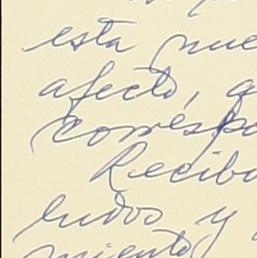 está nue
afecto, q
corréspo
Reciba
ludos y
miento